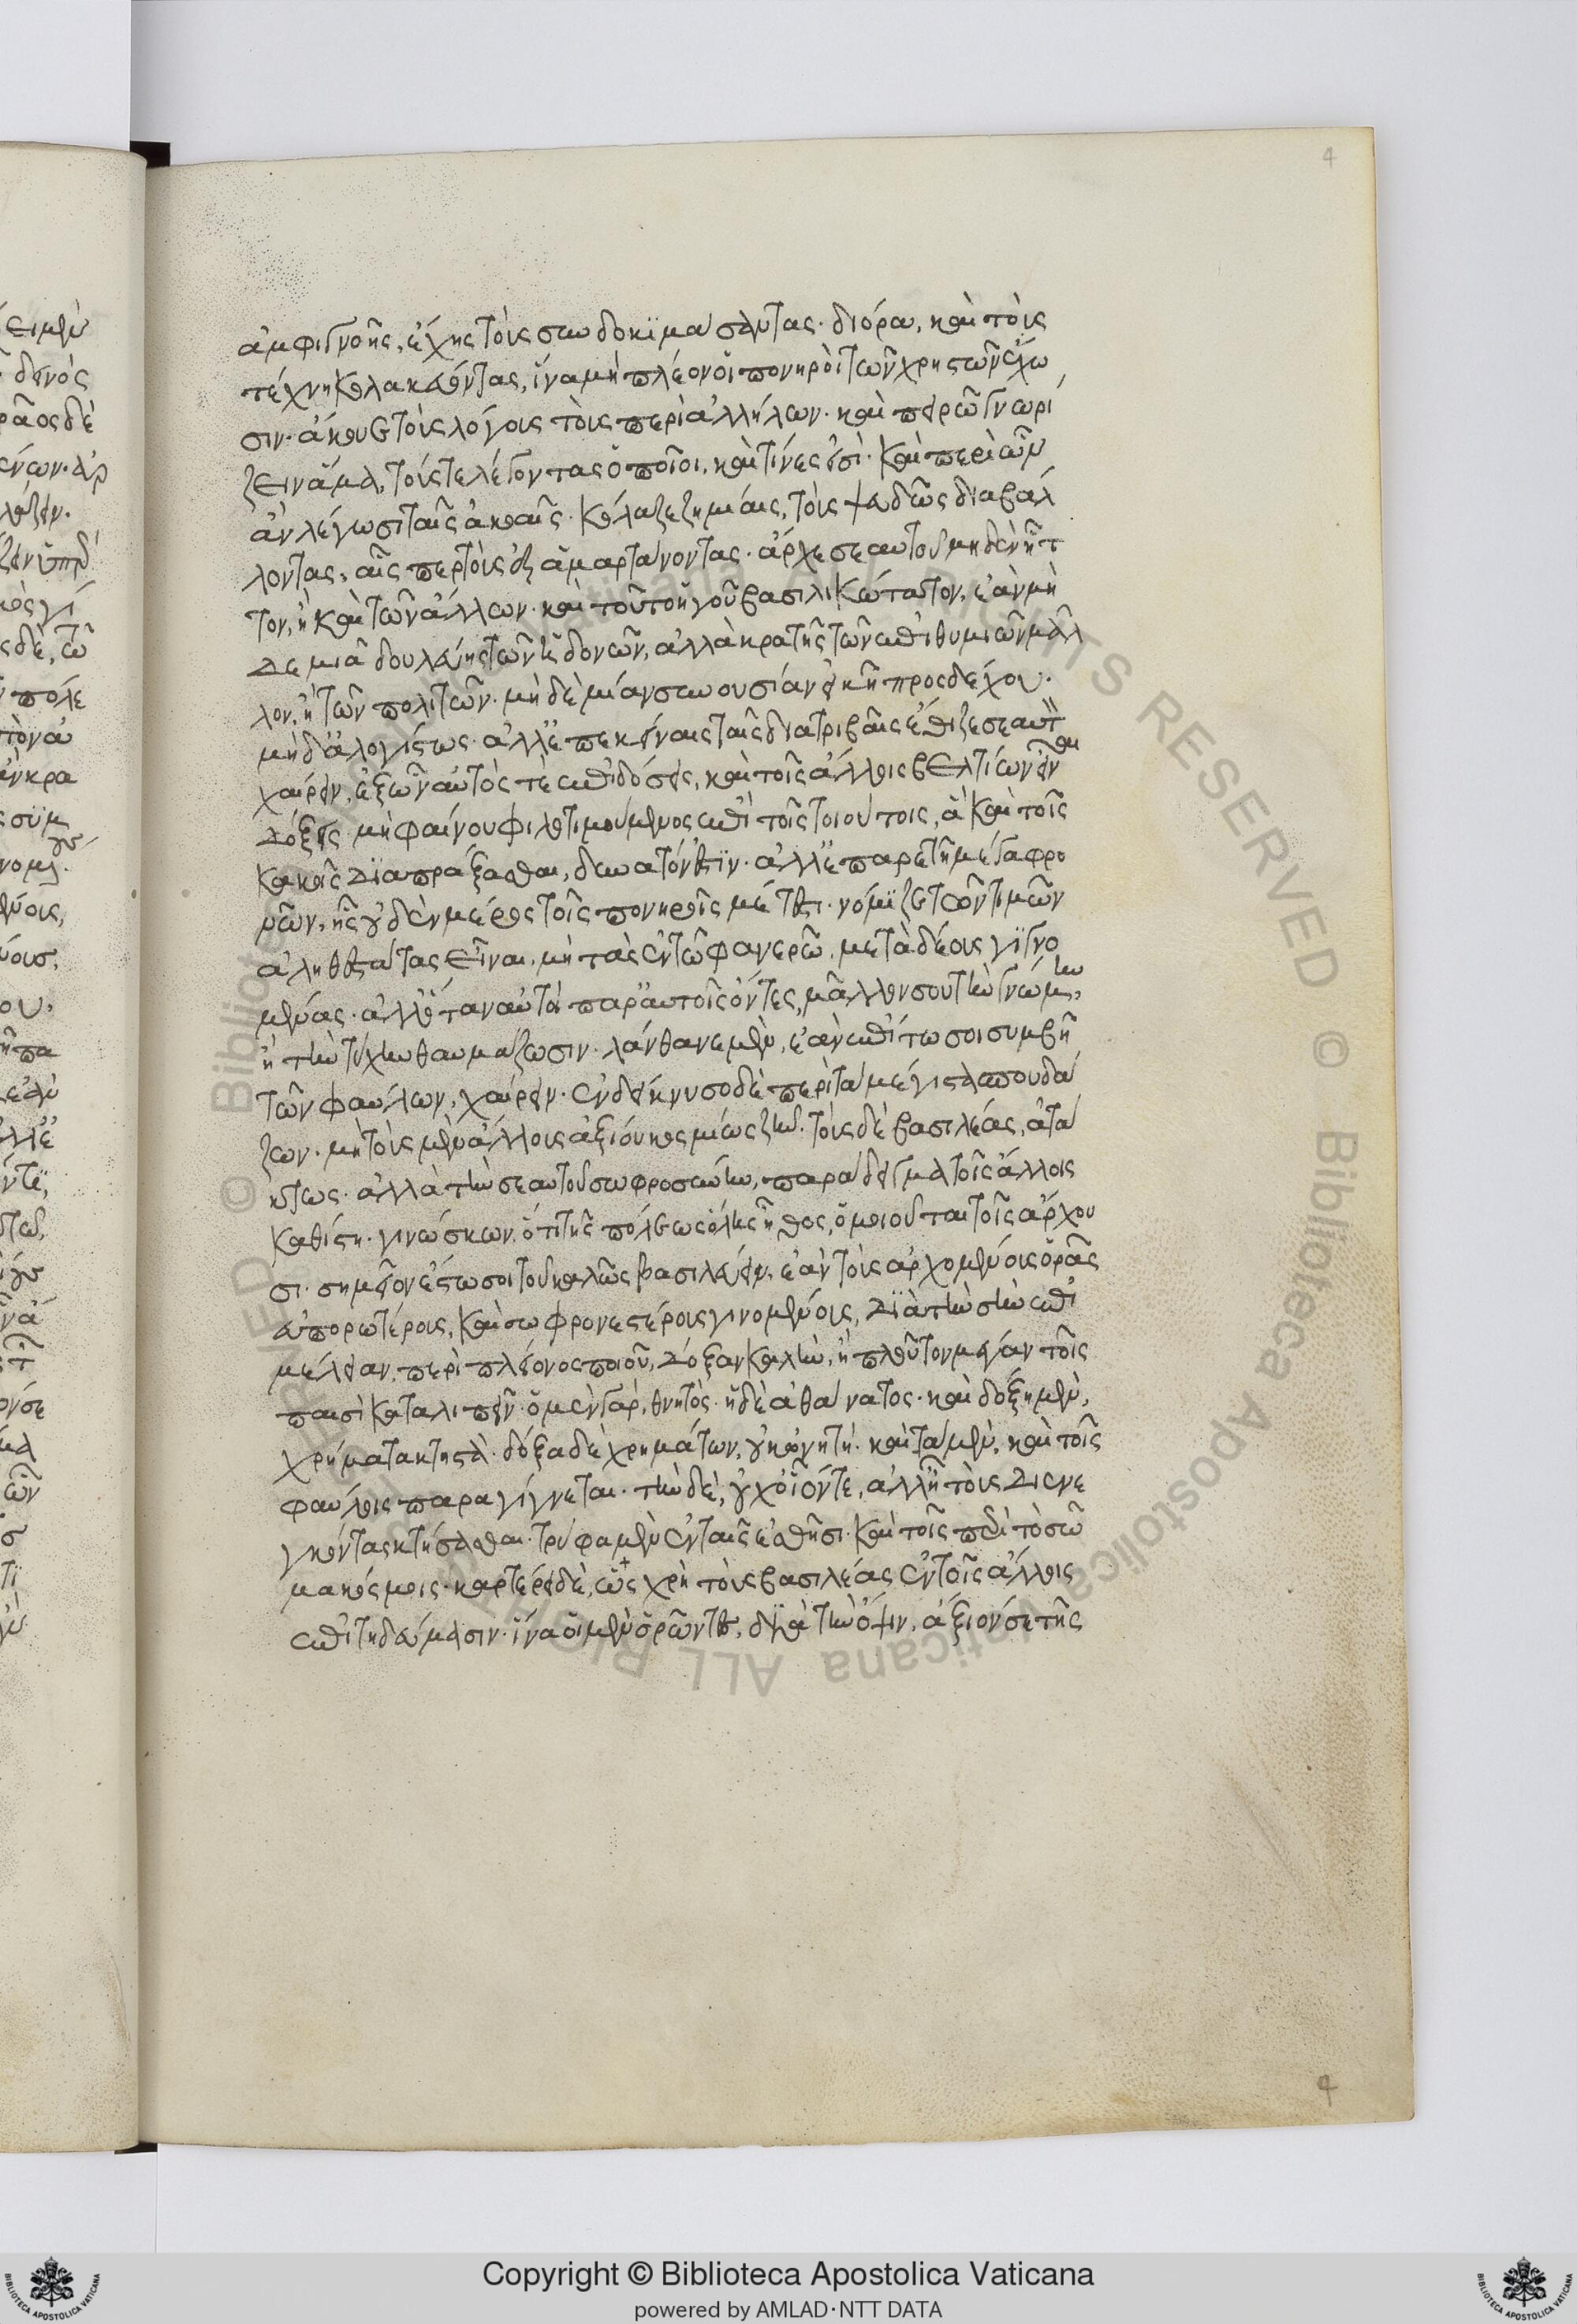 4
ἀμφιγνοῇς, ἔχῃς τοὺς συνδοκιμάσαντας· διόρα, καὶ τοὺς
τέχνῃ κολακεύοντας, ἵνα μὴ πλέον οἱ πονηροὶ τῶν χρηστῶν ἔχω
σιν· ἄκουε τοὺς λόγους τοὺς περὶ ἀλλήλων· καὶ πειρῶ γνωρί
ζειν ἅμα, τούς τε λέγοντας ὁποῖοι, καὶ τίνες εἰσὶ· καὶ περὶ ὧν
ἂν λέγωσι ταῖς ἀκοαῖς· κόλαζε ζημίαις, τοὺς ψευδῶς διαβάλ
λοντας, αἷς περ τοὺς ἐξαμαρτάνοντας· ἄρχε σεαυτοῦ μηδὲν ἧτ
τον, ἢ καὶ τῶν ἄλλων· καὶ τοῦτο ἡγοῦ βασιλικώτατον, ἐὰν μὴ
δεμιᾷ δουλεύῃς τῶν ἡδονῶν, ἀλλὰ κρατῇς τῶν ἐπιθυμιῶν μᾶλ
λον, ἢ τῶν πολιτῶν· μηδὲ μίαν συνουσίαν εἰκῇ προσδέχου·
μηδ' ἀλογίστως· ἀλλ' ἐπ' ἐκείναις ταῖς διατριβαῖς ἔθιζε σεαυτὸν
χαίρειν, ἐξ ὧν αὐτός τε ἐπιδώσεις, καὶ τοῖς ἄλλοις βελτίων εἶναι
δόξεις· μὴ φαίνου φιλοτιμούμενος ἐπὶ τοῖς τοιούτοις, ἃ καὶ τοῖς
κακοῖς διαπράξασθαι, δυνατόν ἐστιν· ἀλλ' ἐπ' ἀρετῇ μέγα φρο
νῶν, ἧς οὐδὲν μέρος τοῖς πονηροῖς μέτεστι· νόμιζε τῶν τιμῶν
ἀληθεστάτας εἶναι, μὴ τὰς ἐν τῷ φανερῷ, μετὰ δέους γιγνο
μένας· ἀλλ' ὅταν αὐτοὶ παρ' αὐτοῖς ὄντες, μᾶλλον σου τὴν γνώμην,
ἢ τὴν τύχην θαυμάζωσιν· λάνθανε μὲν, ἐὰν ἐπί τῳ σοι συμβῇ
τῶν φαύλων, χαίρειν· ἐνδείκνυσο δὲ περὶ τὰ μέγιστα σπουδά
ζων· μὴ τοὺς μὲν ἄλλους ἀξίου κοσμίως ζῆν· τοὺς δὲ βασιλέας, ἀτά
κτως· ἀλλὰ τὴν σεαυτοῦ σωφροσύνην, παράδειγμα τοῖς ἄλλοις
καθίστη· γινώσκων, ὅτι τῆς πόλεως ὅλης ἦθος, ὁμοιοῦται τοῖς ἄρχου
σι· σημεῖον ἔστω σοι τοῦ καλῶς βασιλεύειν, ἐὰν τοὺς ἀρχομένους ὁρᾷς
εὐπορωτέρους, καὶ σωφρονεστέρους γινομένους, διὰ τὴν σὴν ἐπι
μέλειαν. περὶ πλείονος ποιοῦ, δόξαν καλὴν, ἢ πλοῦτον μέγαν τοῖς
παισὶ καταλιπεῖν· ὁ μὲν γὰρ, θνητὸς· ἡ δὲ ἀθάνατος· καὶ δόξῃ μὲν,
χρήματα κτητὰ· δόξα δὲ χρημάτων, οὐκ ὠνητή· καὶ τὰ μὲν, καὶ τοῖς
φαύλοις παραγίγνεται· τὴν δὲ, οὐχ οἷόν τε, ἀλλ' ἢ τοὺς διενε
γκόντας κτήσασθαι· τρύφα μὲν ἐν ταῖς ἐσθῆσι· καὶ τοῖς περὶ τὸ σῶ
μα κόσμοις· καρτέρει δὲ, ὡς χρὴ τοὺς βασιλέας ἐν τοῖς ἄλλοις
ἐπιτηδεύμασιν· ἵνα οἱ μὲν ὁρῶντες, διὰ τὴν ὄψιν, ἄξιόν σε τῆς
4
Copyright © Biblioteca Apostolica Vaticana
powered by AMLAD·NTT DATA